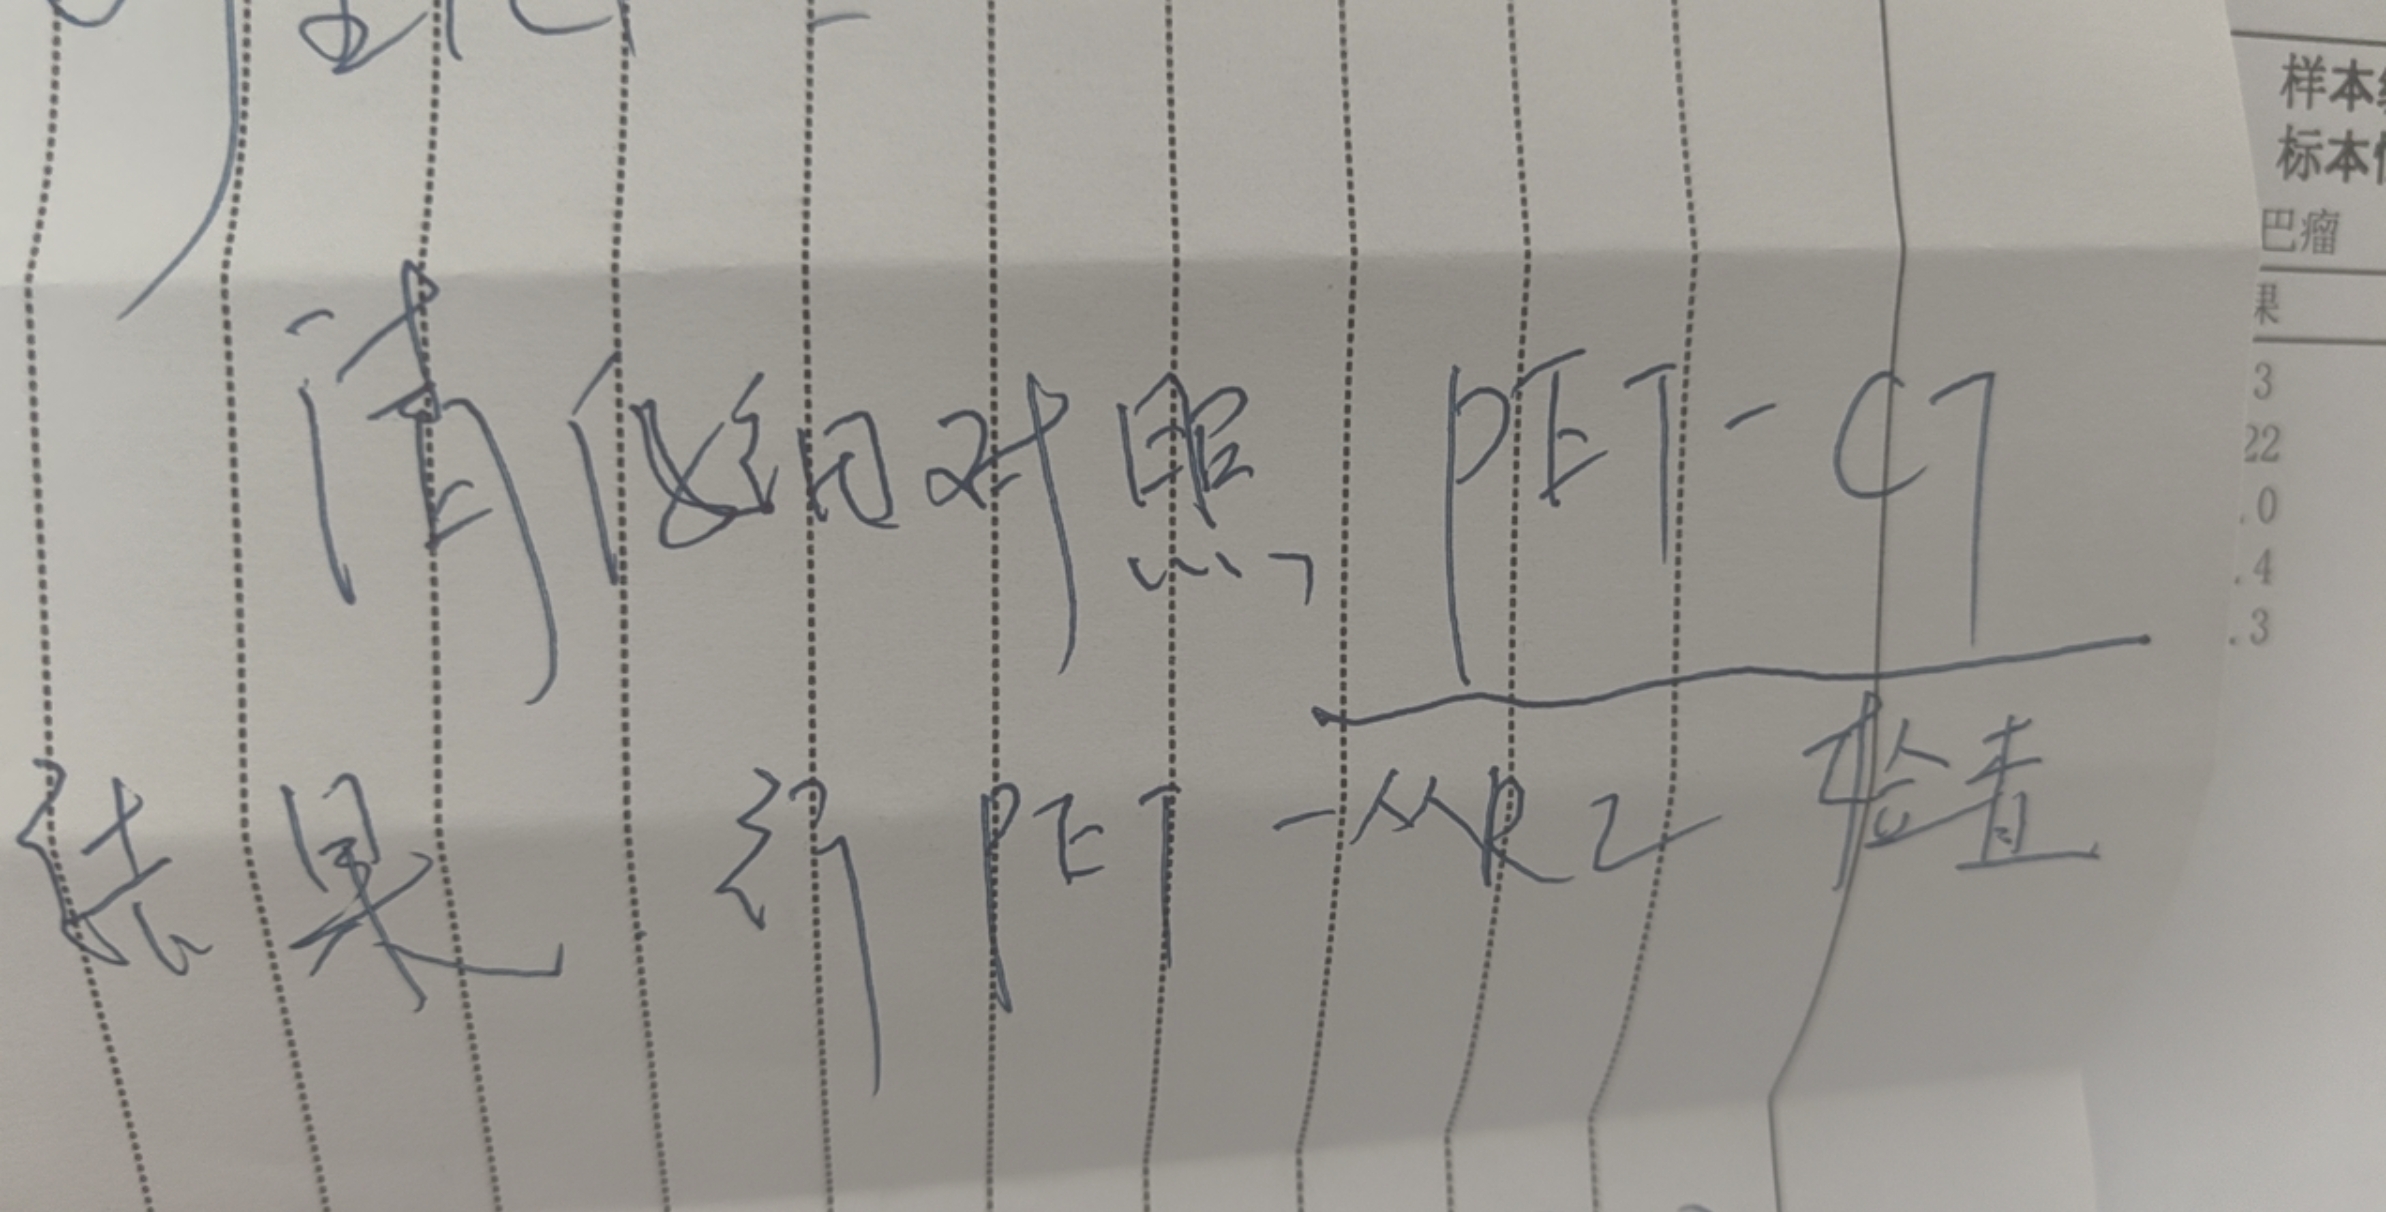 请仔细对照, PET-CT
结果 行 PET-MR 检查
样本
标本
巴瘤
果
3
22
.0
.4
.3